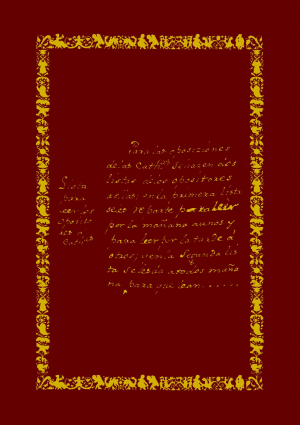 Lista
para
leer los
oposito
res a
Cathas
Para las oposiciones
de las Cath.s se hacen dos
listas de los opositores
a ellas; en la primera lista
se les reparte para leer
por la mañana a unos y
para leer por la tarde a
otros; y en la segunda lis
ta se les da a todos maña
na, para que lean......